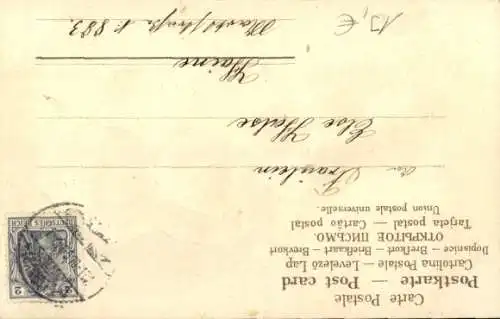 Carte Postale
Postkarte — Post card
Cartolina Postale — Levelező Lap
Dopisnice — Brefkort — Briefkaart — Brevkort
ОТКРЫТОЕ ПИСЬМО.
Tarjeta postal — Cartão postal
Union postale universelle.
Fräulein
Else Hesse
Haine
DEUTSCHES REICH
2 2